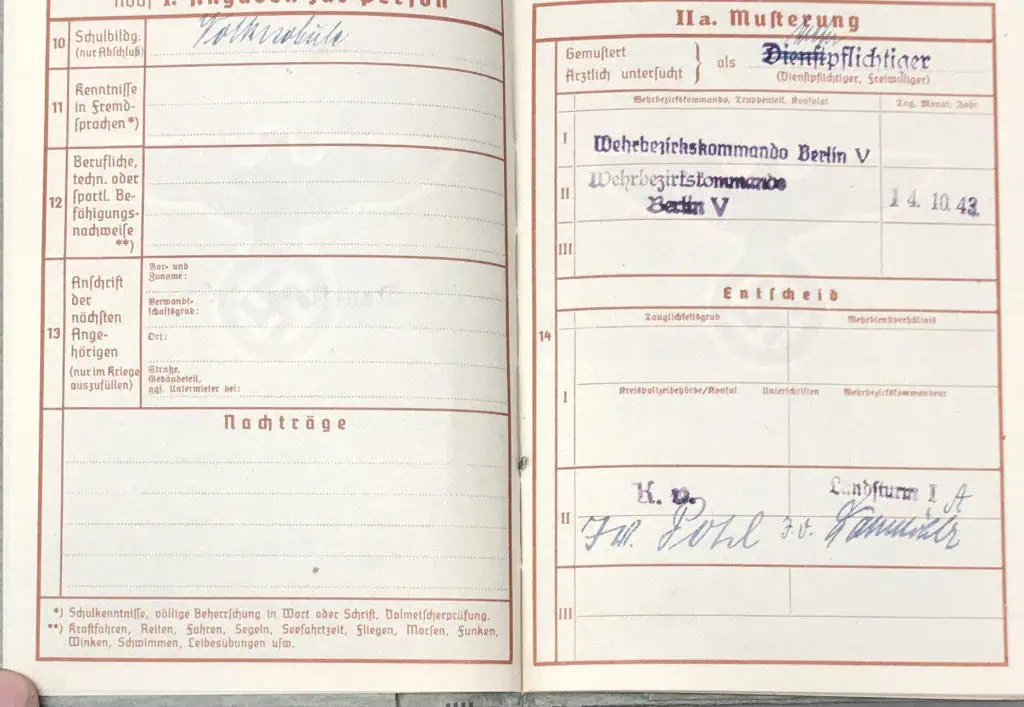 I. Angaben zur Person
10
Schulbildg.
(nur Abschluß)
Volksschule
11
Kenntnisse
in Fremd-
sprachen*)
12
Berufliche,
techn. oder
sportl. Be-
fähigungs-
nachweise
**)
13
Anschrift
der
nächsten
Ange-
hörigen
(nur im Kriege
auszufüllen)
Vor- und
Zuname:
Verwandt-
schaftsgrad:
Ort:
Straße,
Gebäudeteil,
ggf. Untermieter bei:
Nachträge
*) Schulkenntnisse, völlige Beherrschung in Wort oder Schrift, Dolmetscherprüfung.
**) Kraftfahren, Reiten, Fahren, Segeln, Seefahrtzeit, Fliegen, Morsen, Funken,
Winken, Schwimmen, Leibesübungen usw.
IIa. Musterung
Gemustert
Ärztlich untersucht
als
Dienstpflichtiger
(Dienstpflichtiger, Freiwilliger)
Wehrbezirkskommando, Truppenteil, Konsulat
Tag, Monat, Jahr
I
Wehrbezirkskommando Berlin V
II
Wehrbezirkskommando
Berlin V
14. 10. 43
III
Entscheid
14
Tauglichkeitsgrad
Wehrdienstverhältnis
I
Kreispolizeibehörde/Konsul
Unterschriften
Wehrbezirkskommandeur
II
K. v.
Landsturm I A
Pohl
III